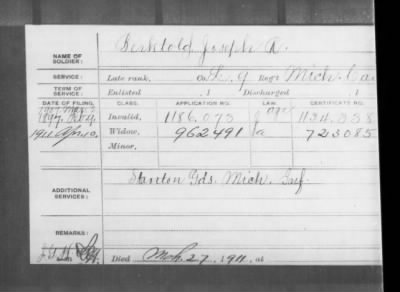 NAME OF SOLDIER: Berktold, Joseph A.
SERVICE: Late rank, Co. L, 9 Reg't Mich. Ca
TERM OF SERVICE: Enlisted , 1 Discharged , 1
DATE OF FILING. CLASS. APPLICATION NO. LAW. CERTIFICATE NO.
Invalid, 1186.073 age 1134.338
1911 Apr Widow, 962491 a 723085
Minor,
ADDITIONAL SERVICES: Stanton Gds. Mich. Inf.
REMARKS:
Died Mch. 27, 1911, at